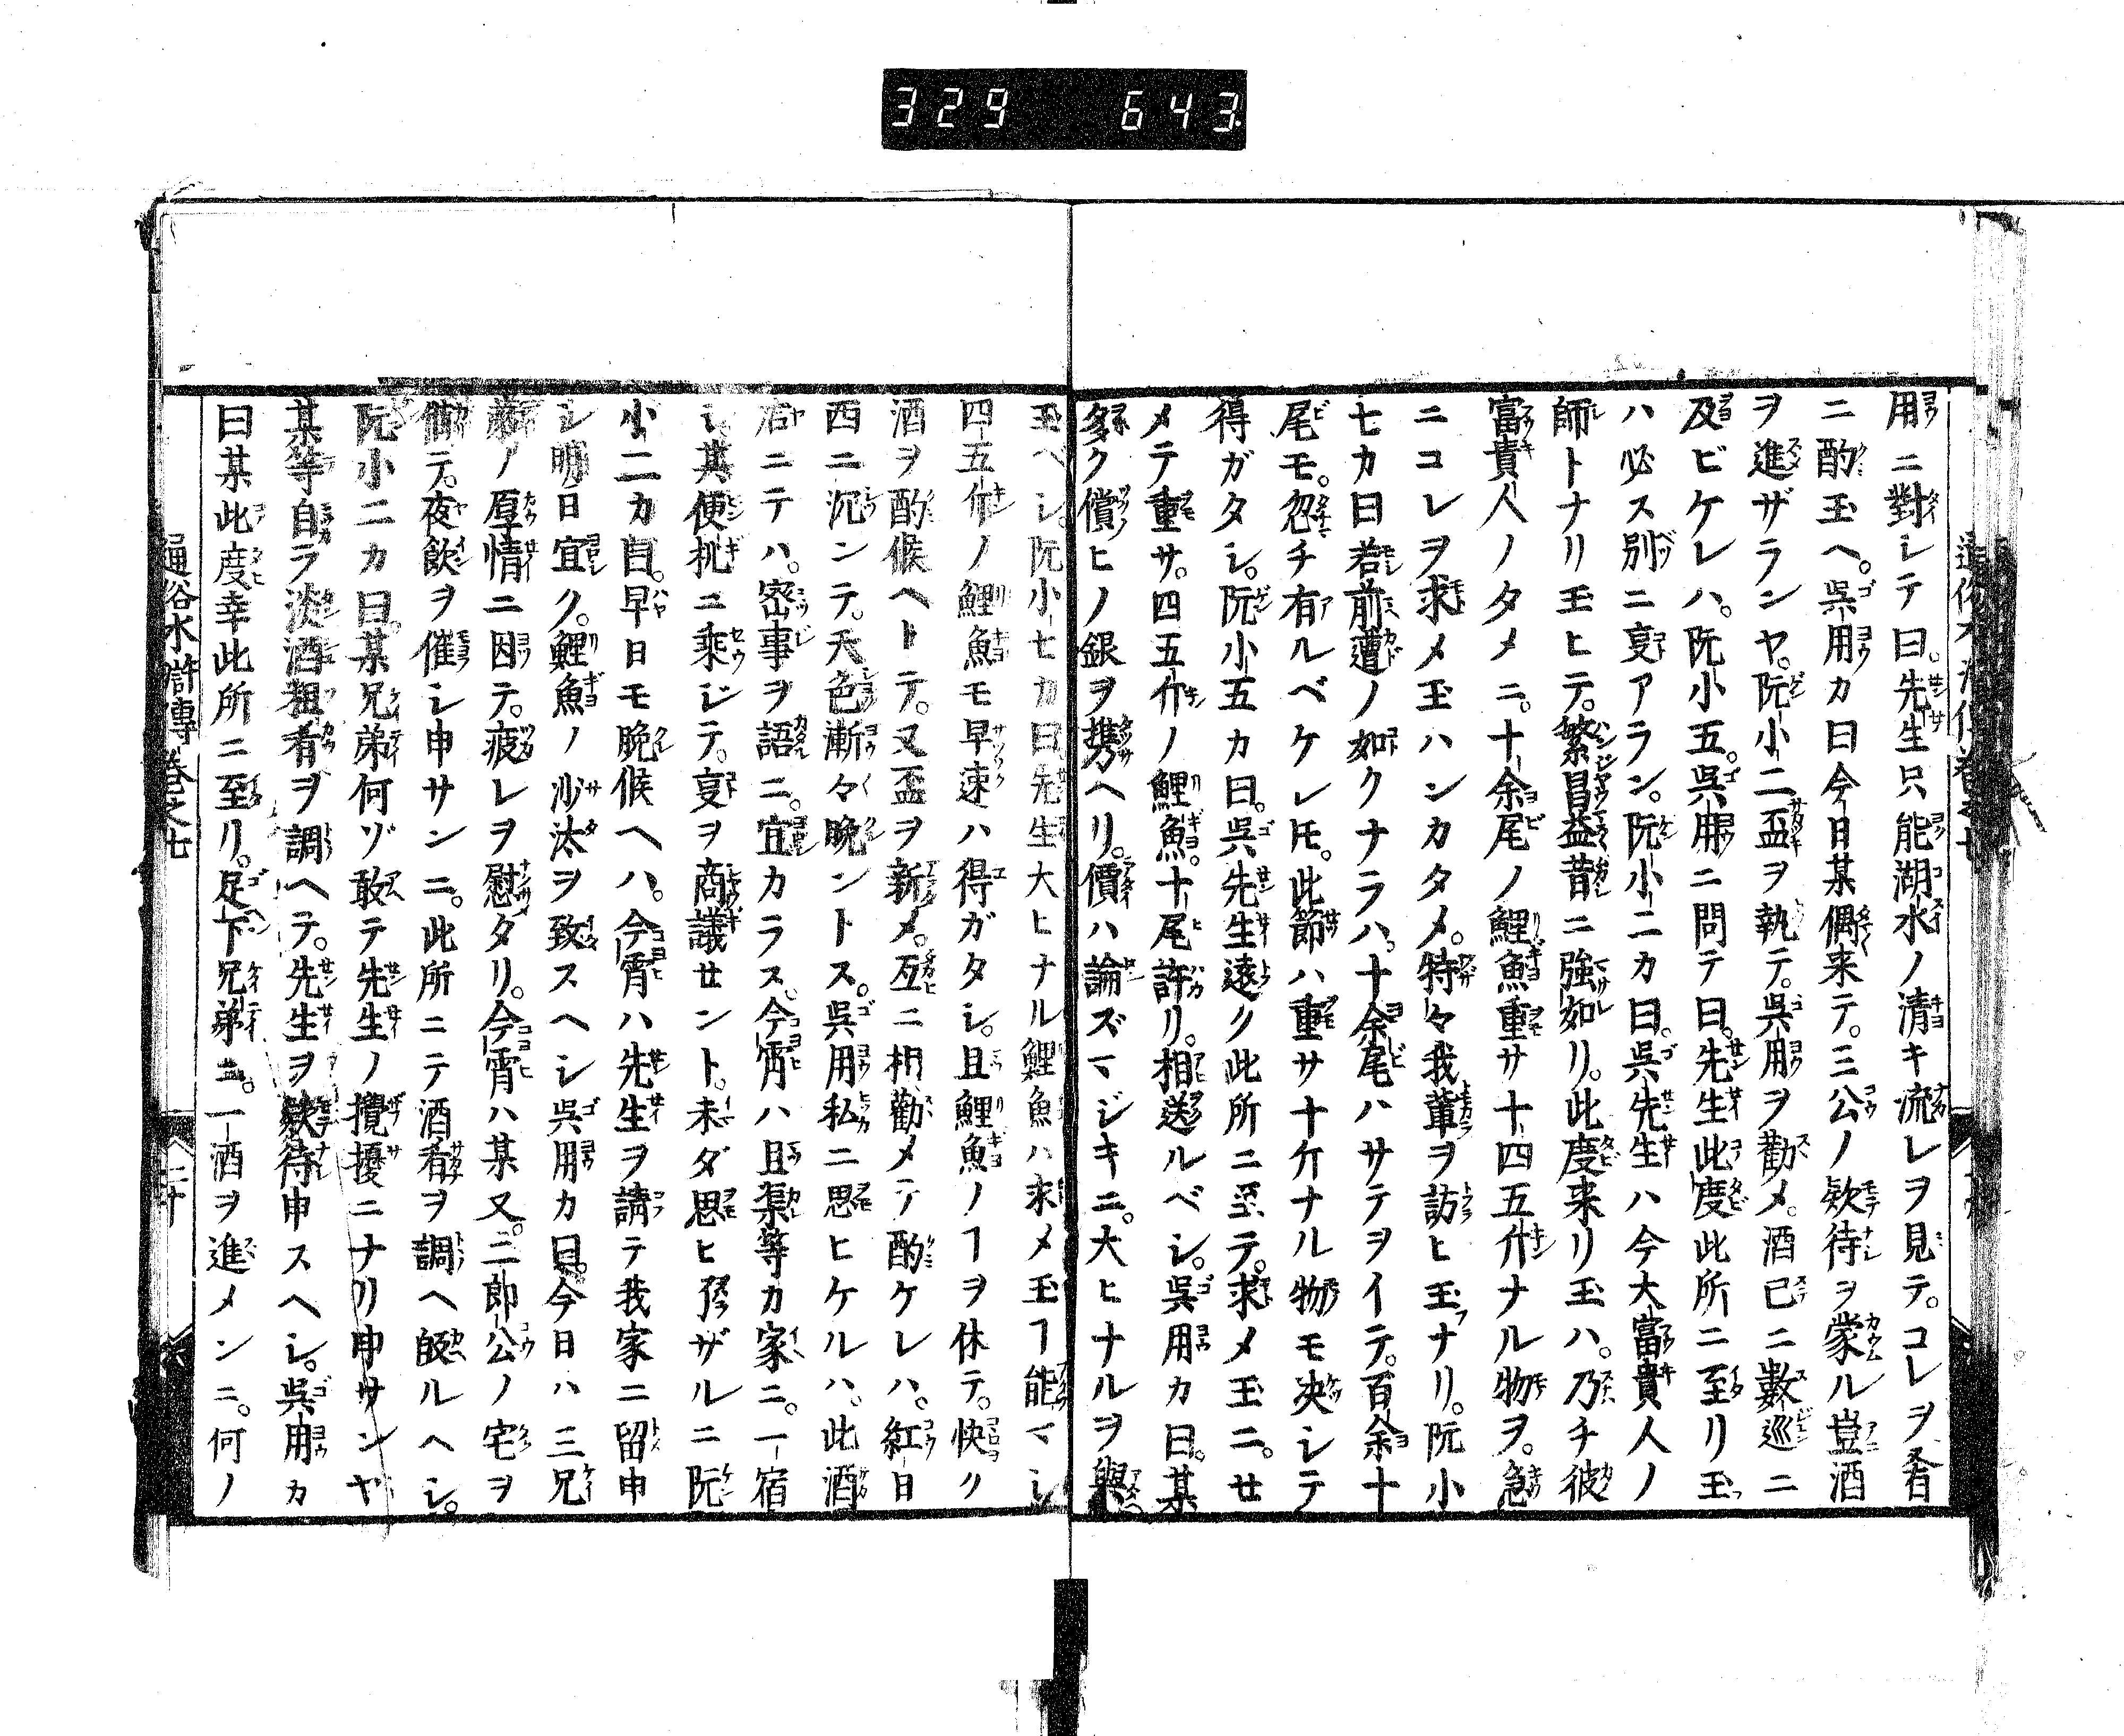 329 643
用ニ對シテ曰。先生只能湖水ノ清キ流レヲ見テ。コレヲ肴
ニ酌玉ヘ。呉用カ曰今日某偶来テ。三公ノ欵待ヲ蒙ル豈酒
ヲ進ザランヤ。阮小二盃ヲ執テ。呉用ヲ勸メ。酒已ニ數巡ニ
及ビケレハ。阮小五。呉用ニ問テ曰。先生此度此所ニ至リ玉
ハ必ス別ニ叓アラン。阮小二カ曰。呉先生ハ今大富貴人ノ
師トナリ玉ヒテ。繁昌益昔ニ強如リ。此度来リ玉ハ。乃チ彼
富貴人ノタメニ。十余尾ノ鯉魚重サ十四五斤ナル物ヲ。急
ニコレヲ求メ玉ハンカタメ。特々我輩ヲ訪ヒ玉ナリ。阮小
七カ曰若前遭ノ如クナラハ。十余尾ハサテヲイテ。百余十
尾モ。忽チ有ルベケレ𪜈。此節ハ重サ十斤ナル物モ决シテ
得ガタシ。阮小五カ曰。呉先生遠ク此所ニ至テ。求メ玉ニ。セ
メテ重サ。四五斤ノ鯉魚。十尾許リ。相送ルベシ。呉用カ曰。某
多ク償ヒノ銀ヲ携ヘリ。價ハ論ズマジキニ。大ヒナルヲ與
玉ヘシ。阮小七カ曰先生大ヒナル鯉魚ハ求メ玉フ能マシ
四五斤ノ鯉魚モ早速ハ得ガタシ。且鯉魚ノヿヲ休テ。快ク
酒ヲ酌候ヘトテ。又盃ヲ新メ。互ニ相勸メテ酌ケレハ。紅日
西ニ沉ンテ。天色漸々晩ントス。呉用私ニ思ヒケルハ。此酒
店ニテハ。密事ヲ語ニ。宜カラス。今宵ハ且渠等カ家ニ。一宿
シ其便機ニ乗ジテ。叓ヲ商議セント。未ダ思ヒ了ザルニ阮
小二カ曰。早日モ晩候ヘハ。今宵ハ先生ヲ請テ我家ニ留申
シ明日宜ク。鯉魚ノ沙汰ヲ致スヘシ呉用カ曰。今日ハ三兄
ノ厚情ニ因テ。疲レヲ慰タリ。今宵ハ某又。二郎公ノ宅ヲ
借テ。夜飲ヲ催シ申サンニ。此所ニテ酒肴ヲ調ヘ皈ルヘシ。
阮小二カ曰。某兄弟何ゾ敢テ先生ノ攪擾ニナリ申サンヤ
某等自ラ淡酒粗肴ヲ調ヘテ。先生ヲ欵待申スヘシ。呉用カ
曰某此度幸此所ニ至リ。足下兄弟ニ。一酒ヲ進メンニ。何ノ
通俗水滸傳巻之七 二十